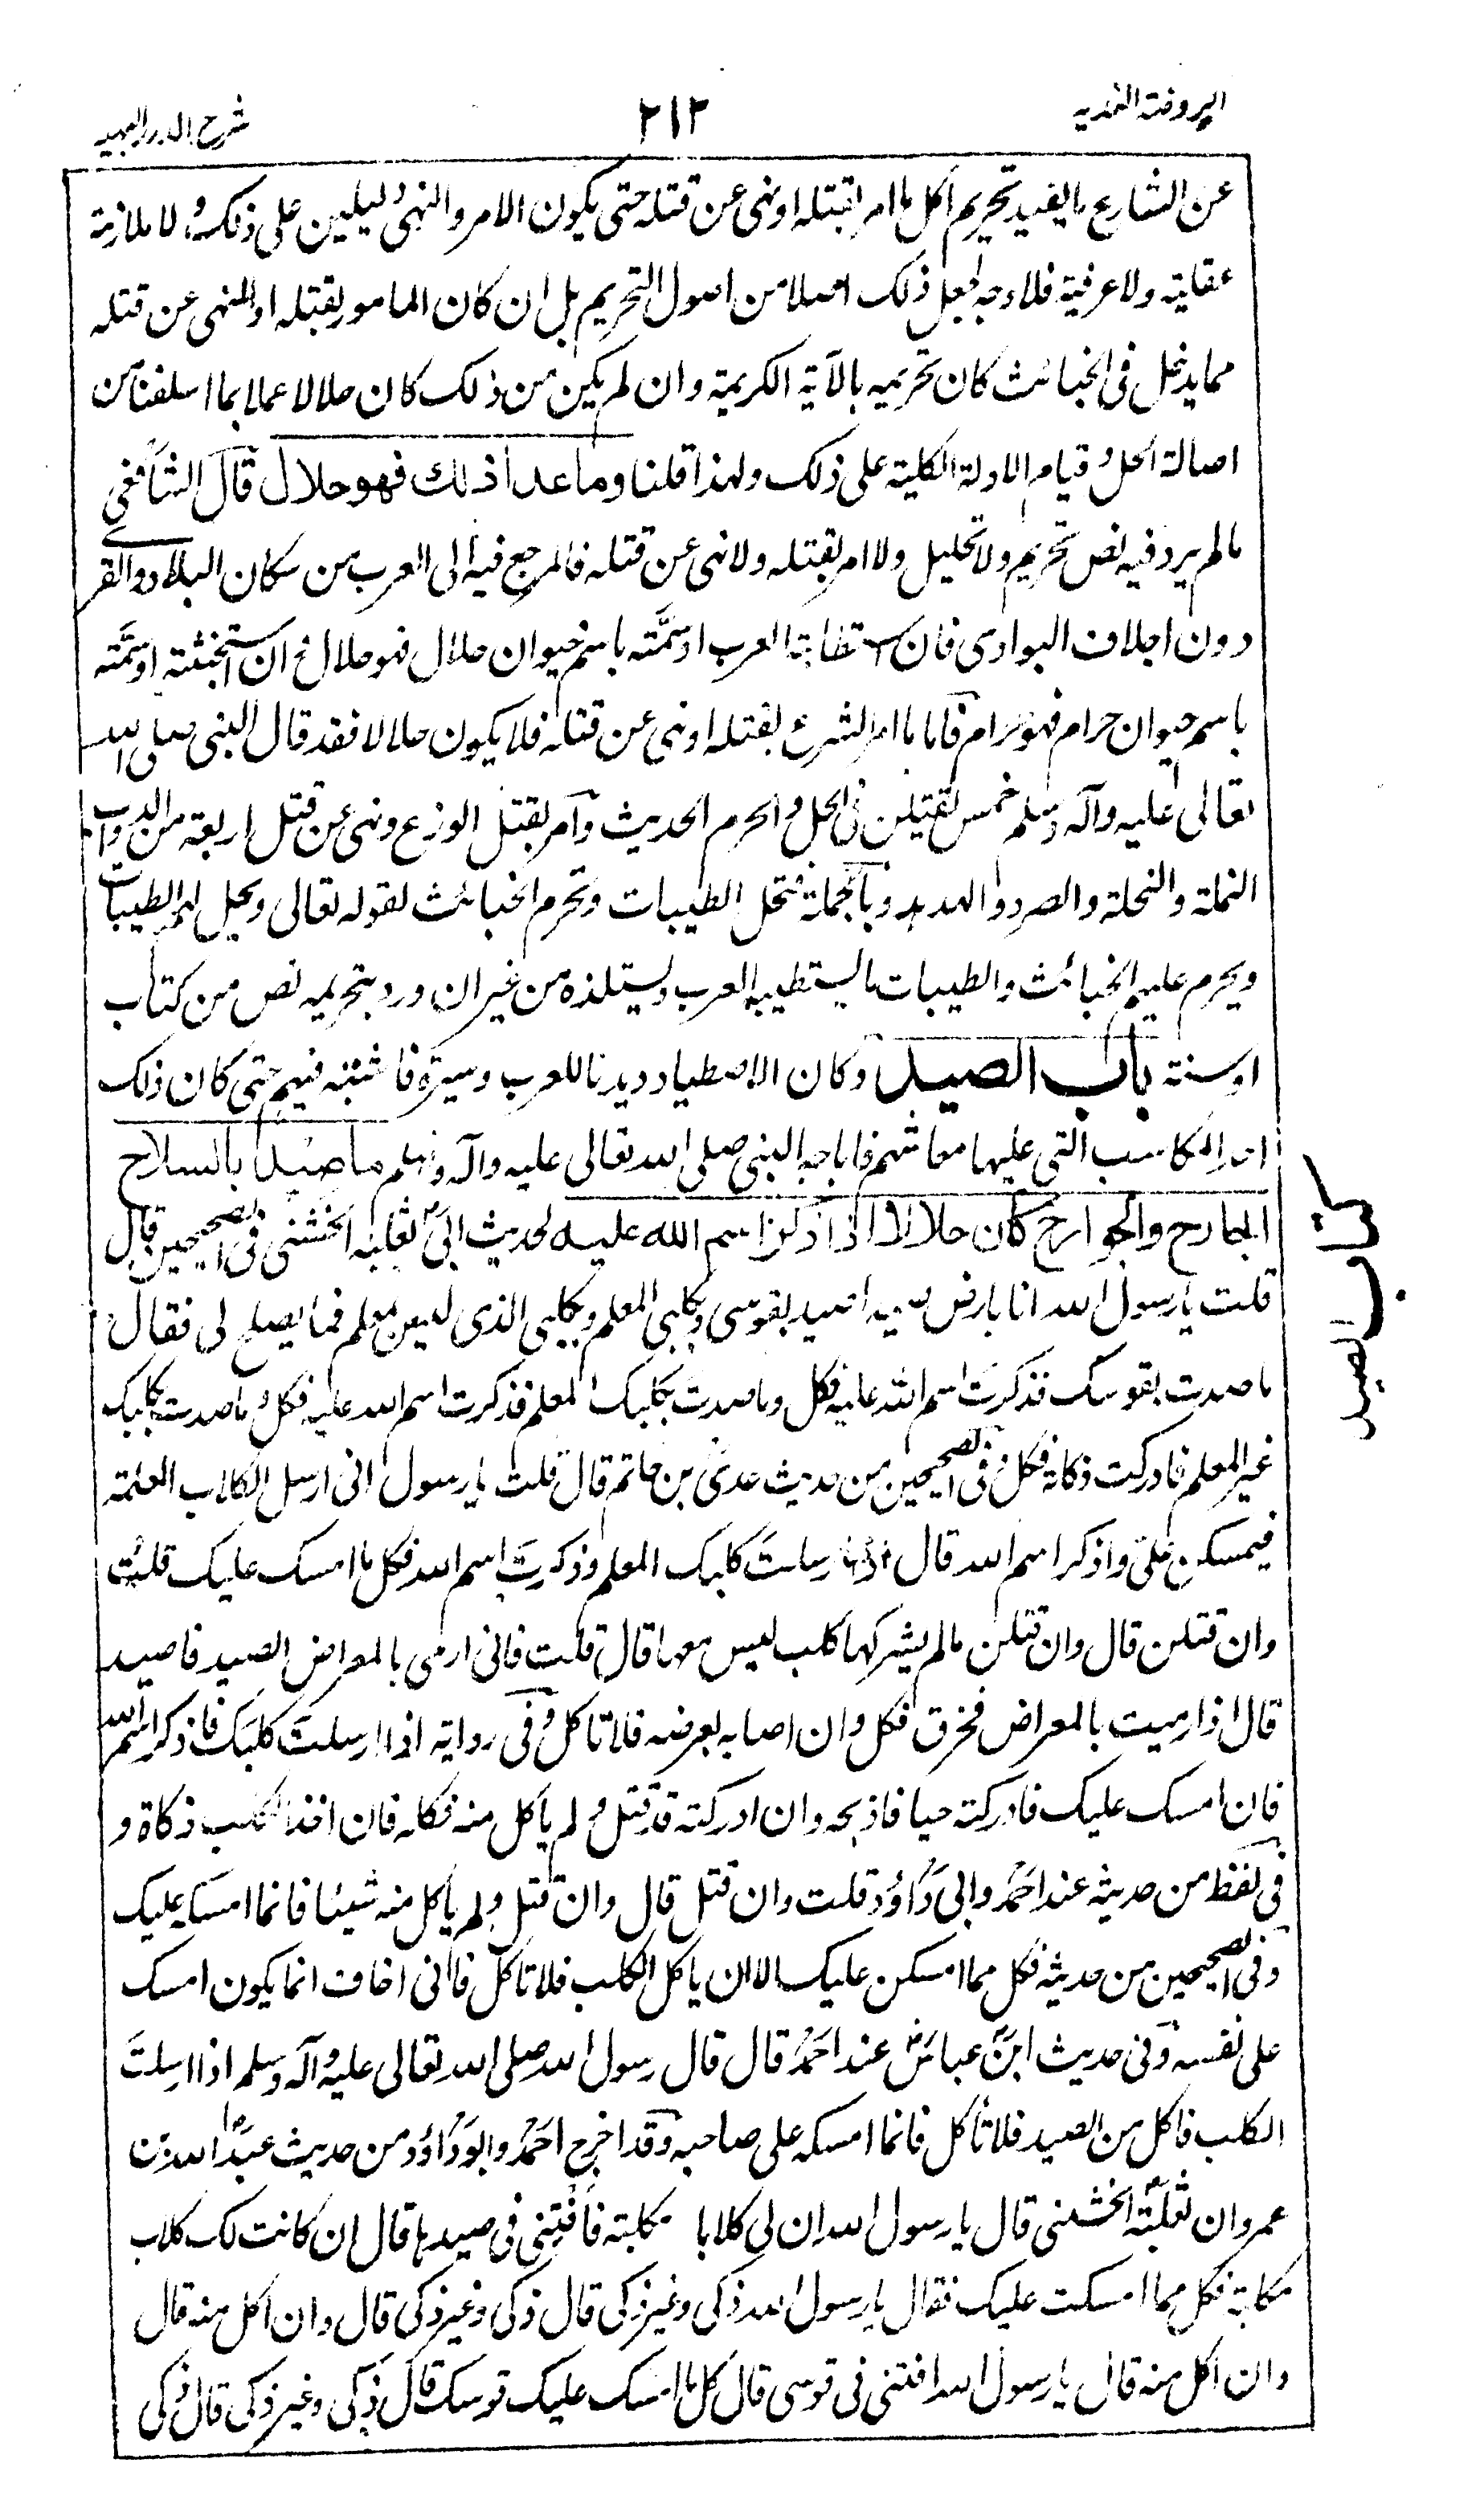 الروضة الندية
٢١٢
شرح الدرر البهية
عن الشارع ما يفيد تحريم اكل ما امر بقتله او نهى عن قتله حتى يكون الامر والنهى دليلين على ذلك ولا ملازمة
عقلية ولا عرفية فلا وجه لجعل ذلك اصلا من اصول التحريم بل ان كان المامور بقتله او المنهى عن قتله
مما يدخل فى الخبائث كان تحريمه بالآية الكريمة وان لم يكن من ذلك كان حلالا عملا بما اسلفنا من
اصالة الحل وقيام الادلة الكلية على ذلك ولهذا قلنا وما عدا ذلك فهو حلال قال الشافعى
ما لم يرد فيه نص تحريم ولا تحليل ولا امر بقتله ولا نهى عن قتله فالمرجع فيه الى العرب من سكان البلاد والقرى
دون اجلاف البوادى فان استطابته العرب او سمَّته باسم حيوان حلال فهو حلال وان استخبثته او سمَّته
باسم حيوان حرام فهو حرام فاما ما امر الشرع بقتله او نهى عن قتله فلا يكون حلالا فقد قال النبى صلى الله
تعالى عليه وآله وسلم خمس يقتلن فى الحل والحرم الحديث وآمر بقتل الوزغ ونهى عن قتل اربعة من الدواب
النملة والنحلة والصرد والهدهد وبالجملة فتحل الطيبات وتحرم الخبائث لقوله تعالى ويحل لهم الطيبات
ويحرم عليهم الخبائث والطيبات ما يستطيبه العرب ويستلذه من غير ان ورد بتحريمه نص من كتاب
او سنة باب الصيد وكان الاصطياد ديدنا للعرب وسيرة فاشية فيهم حتى كان ذلك
احد المكاسب التى عليها معاشهم فاباحه النبى صلى الله تعالى عليه وآله وسلم ما صيد بالسلاح
الجارح والجوارح كان حلالا اذا ذكر اسم الله عليه لحديث ابى ثعلبة الخشنى فى الصحيحين قال
قلت يا رسول الله انا بارض صيد اصيد بقوسى وبكلبى المعلم وبكلبى الذى ليس بمعلم فما يصلح لى فقال
ما صدت بقوسك فذكرت اسم الله عليه فكل وما صدت بكلبك المعلم فذكرت اسم الله عليه فكل وما صدت بكلبك
غير المعلم فادركت ذكاته فكل وفى الصحيحين من حديث عدى بن حاتم قال قلت يا رسول انى ارسل الكلاب المعلمة
فيمسكن علىّ واذكر اسم الله قال اذا ارسلت كلبك المعلم وذكرت اسم الله فكل ما امسك عليك قلت
وان قتلن قال وان قتلن ما لم يشركها كلب ليس معها قال قلت فانى ارمى بالمعراض الصيد فاصيد
قال اذا رميت بالمعراض فخرق فكل وان اصابه بعرضه فلا تاكل وفى رواية اذا ارسلت كلبك فاذكر اسم الله
فان امسك عليك فادركته حيا فاذبحه وان ادركته قد قتل ولم ياكل منه فكله فان اخذ الكلب ذكاة و
فى لفظ من حديثه عند احمد وابى داؤد قلت وان قتل قال وان قتل ولم ياكل منه شيئا فانما امسكه عليك
وفى الصحيحين من حديثه فكل مما امسكن عليك الا ان ياكل الكلب فلا تاكل فانى اخاف انما يكون امسك
على نفسه وفى حديث ابن عباس عند احمد قال قال رسول الله صلى الله تعالى عليه وآله وسلم اذا ارسلت
الكلب فاكل من الصيد فلا تأكل فانما امسكه على صاحبه وقد اخرج احمد وابو داؤد من حديث عبد الله بن
عمرو ان ثعلبة الخشنى قال يا رسول الله ان لى كلابا مكلبة فافتنى فى صيدها قال ان كانت لك كلاب
مكلبة فكل مما امسكت عليك فقال يا رسول الله ذكى وغير ذكى قال ذكى وغير ذكى قال وان اكل منه قال
وان اكل منه قال يا رسول الله افتنى فى قوسى قال كل ما امسك عليك قوسك قال ذكى وغير ذكى قال ذكى
كتاب الصيد